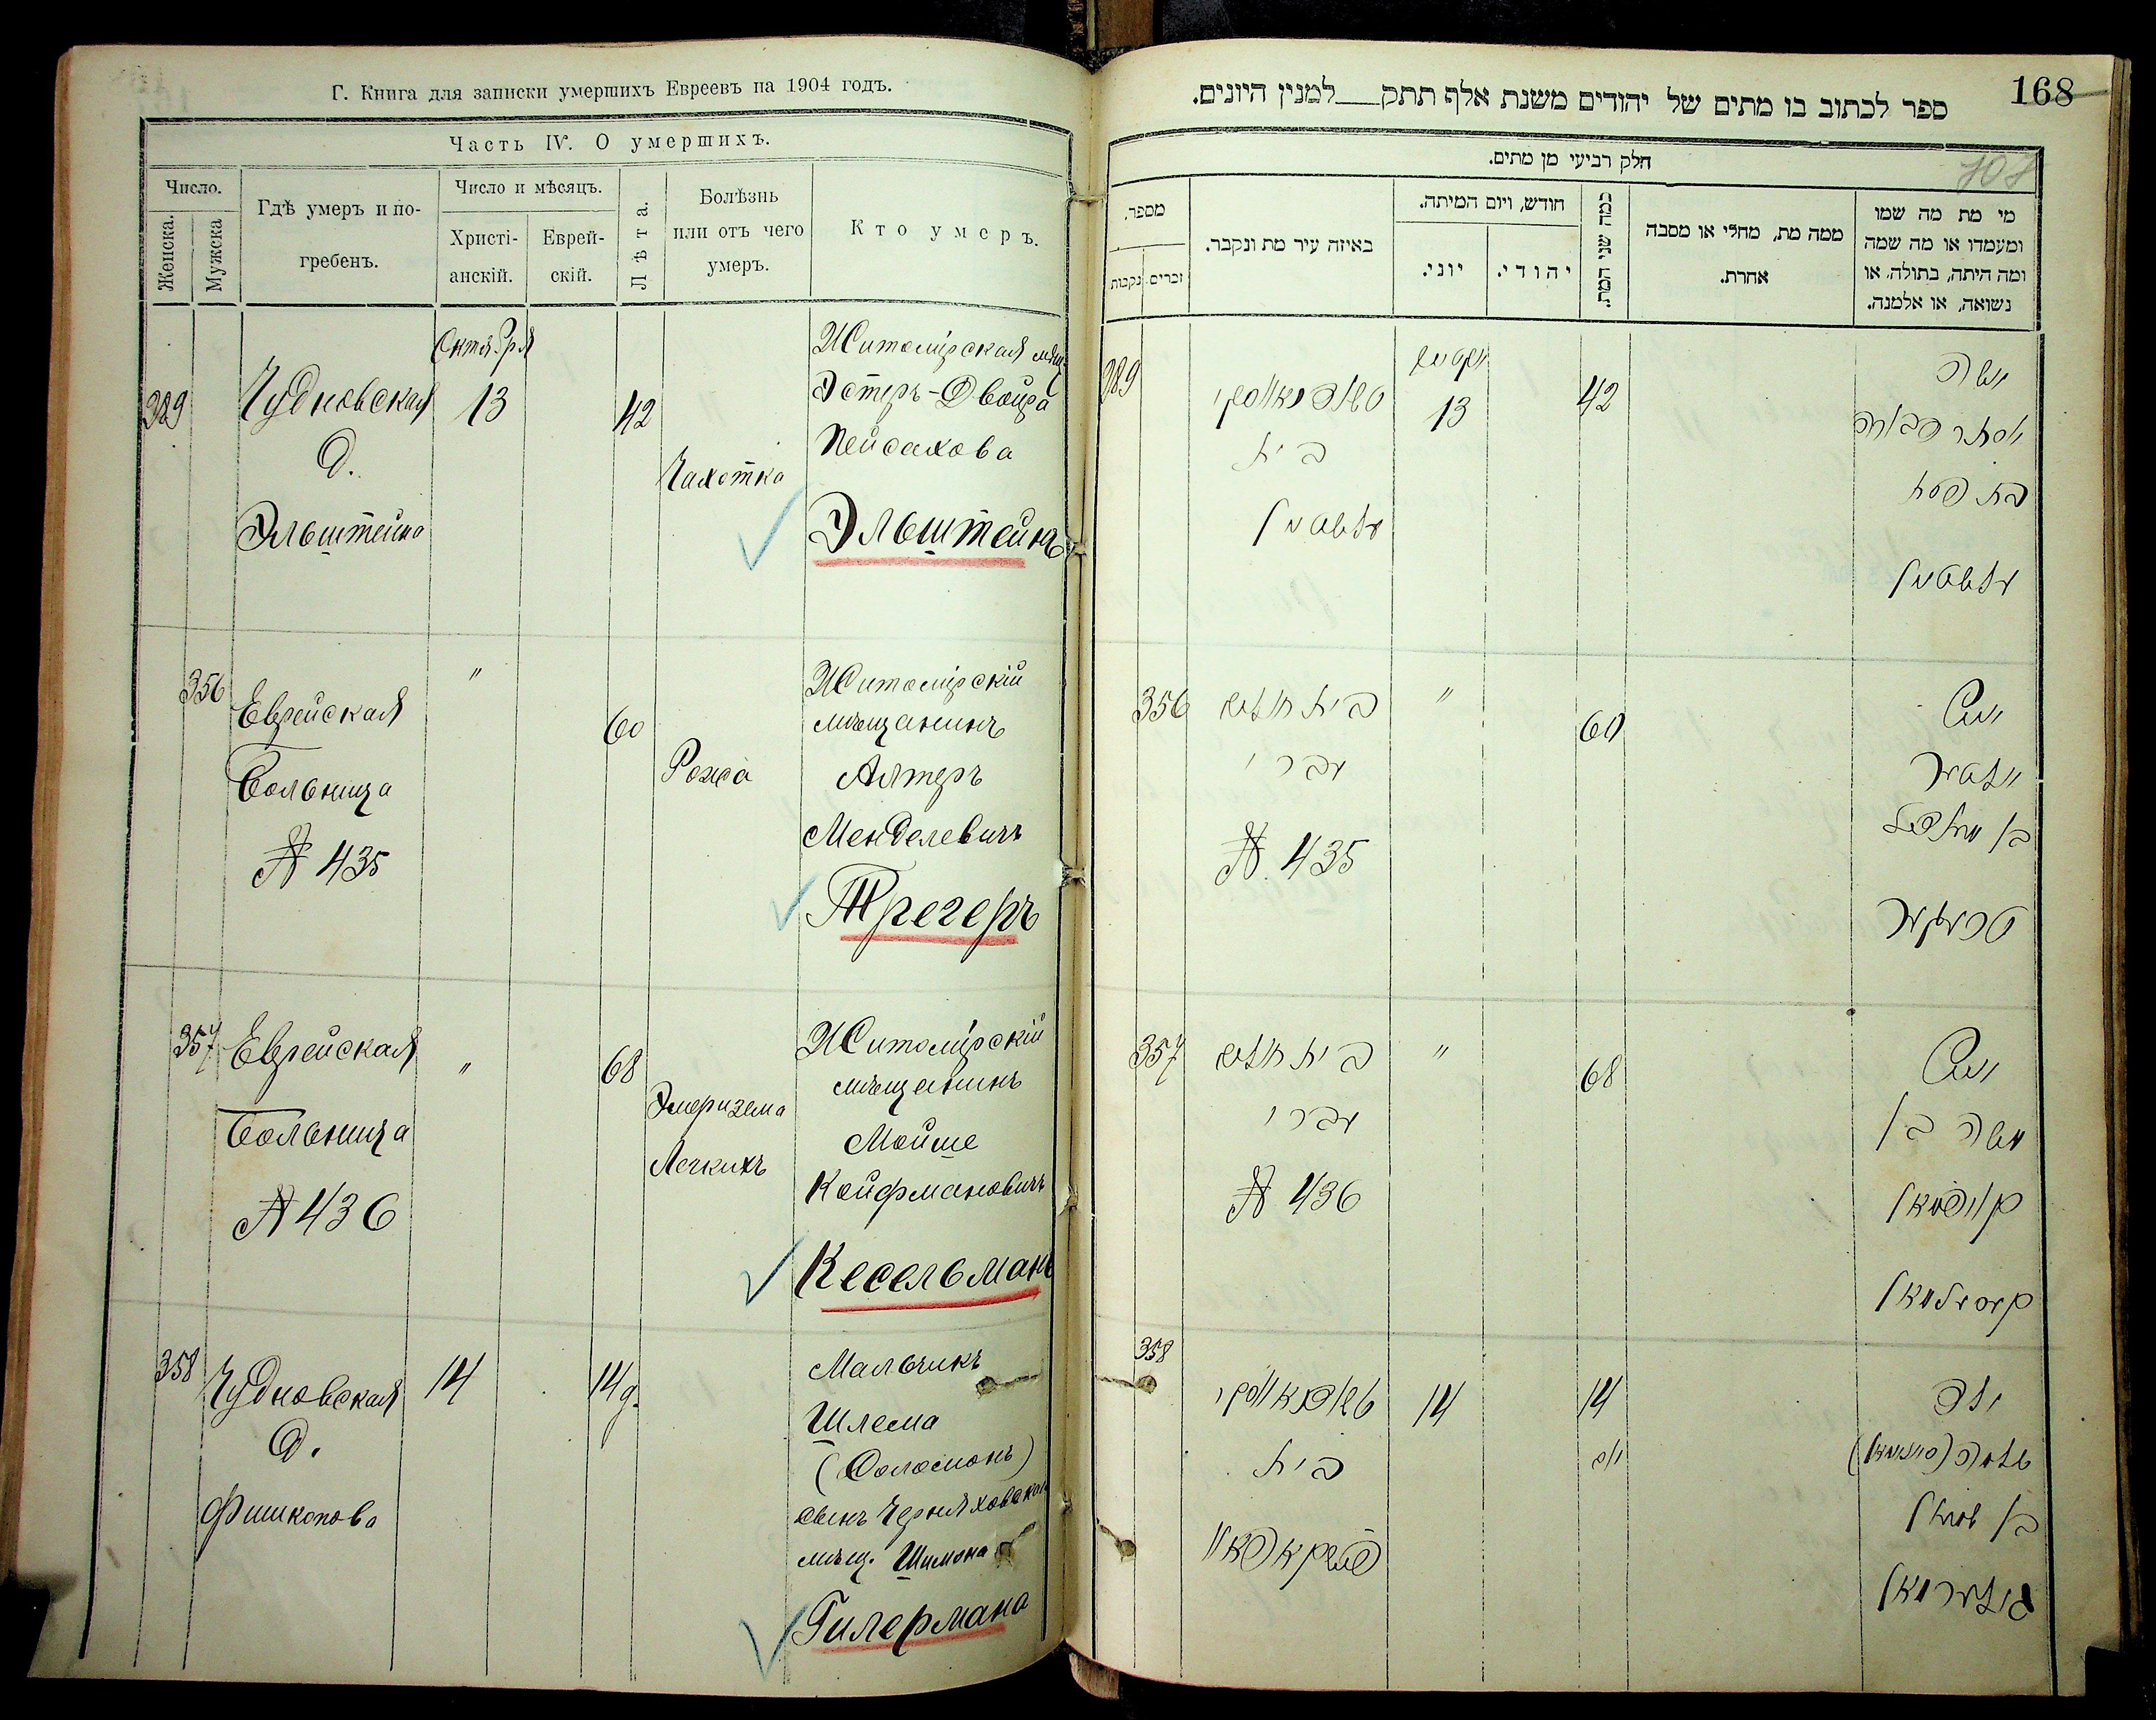 Г. Книга для записки умершихъ Евреевъ на 1904 годъ.
Часть IV. О умершихъ.
Число.
Женска.
Мужска
Гдѣ умеръ и по-
гребенъ.
Число и мѣсяцъ.
Христі-
анскій.
Еврей-
скій.
Лѣта.
Болѣзнь
или отъ чего
умеръ.
Кто умеръ.
389
Чудновская
д.
Эльштейна
Октября
13
42
Чахотка
Житомірская мѣщ.
Эстеръ-Двойра
Пейсахова
Эльштейнъ
356
Еврейская
Больница
№ 435
"
60
Рожа
Житомірскій
мѣщанинъ
Алтеръ
Менделевичъ
Трегеръ
357
Еврейская
Больница
№ 436
"
68
Эмфизема
Легкихъ
Житомірскій
мѣщанинъ
Мойше
Койфмановичъ
Кесельманъ
358
Чудновская
д.
Фишкопова
14
14 д.
Мальчикъ
Шлема
(Соломонъ)
сынъ Черняховскаго
мѣщ. Шимона
Гилермана
168
ספר לכתוב בו מתים של יהודים משנת אלף תתק למנין היונים.
חלק רביעי מן מתים.
מי מת מה שמו
ומעמדו או מה שמה
ומה היתה, בתולה, או
נשואה, או אלמנה.
ממה מת, מחלי או מסבה
אחרת.
כמה שני המת.
חודש, ויום המיתה.
יהודי.
יוני.
באיזה עיר מת ונקבר.
מספר.
זכרים.
נקבות
389
בית
עלשטיין
13
42
אשה
אסתר דבורה
בת פסח
עלשטיין
356
בית חולים
עברי
№ 435
"
60
איש
אלטער
בן מענדל
טרעגער
357
בית חולים
עברי
№ 436
"
68
איש
משה בן
קויפמאן
קעסעלמאן
358
בית
פישקאפאוו
14
14
יום
ילד
שלמה (סאלאמאן)
בן שמעון
גילערמאן